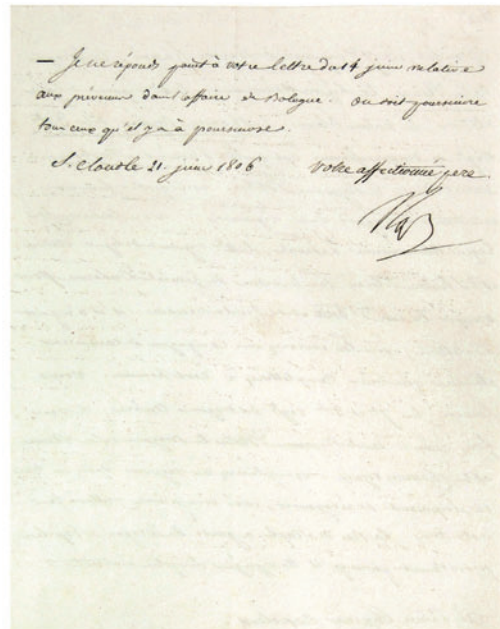 — Je ne réponds point à votre lettre du 14 juin relative
aux prévenus dans l'affaire de Bologne. on doit poursuivre
tous ceux qu'il y a à poursuivre.
S. Cloud le 21. juin 1806 votre affectionné pere.
Nap